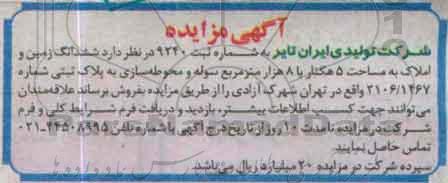 آگهی مزایده
شرکت تولیدی ایران تایر به شماره ثبت ۹۲۴۰ در نظر دارد ششدانگ زمین و
املاک به مساحت ۵ هکتار با ۸ هزار مترمربع سوله و محوطه‌سازی به پلاک ثبتی شماره
۳۱۰۶/۱۴۶۷ واقع در تهران شهرک آزادی را از طریق مزایده بفروش برساند علاقه‌مندان
می‌توانند جهت کسب اطلاعات بیشتر، بازدید و دریافت فرم شرایط کلی و فرم
شرکت در مزایده تا مدت ۱۰ روز از تاریخ درج آگهی با شماره تلفن ۴۴۵۰۸۹۹۵-۰۲۱
تماس حاصل نمایند.
سپرده شرکت در مزایده ۲۰ میلیارد ریال می‌باشد.